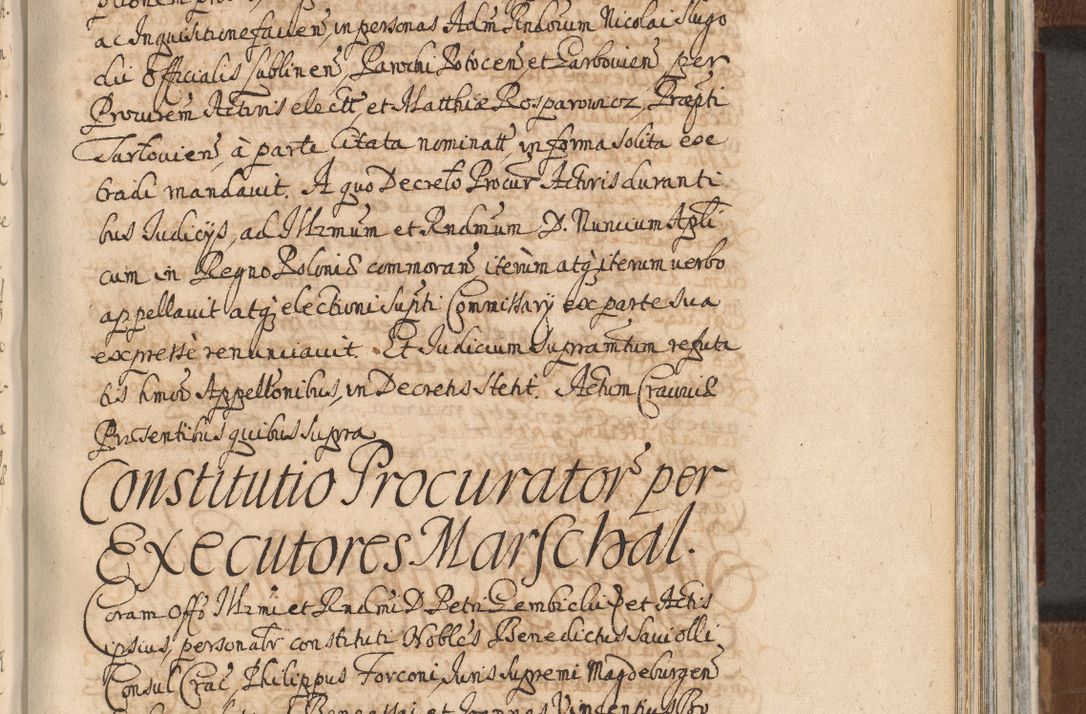 ac Inquisitione facien, in personas Adm Rndorum Nicolai Slugo
dii Officialis Lublinen, Parochi Potocen, et Garbovien, per
Procurem Actoris elect, et Matthiæ Rosparowicz, Præpti
Tarlovien, à parte Citata nominatt, in forma solita exe
tradi mandavit. A quo Decreto Procur Actoris duranti
bus Judicijs, ad Illrmum et Rndmum D. Nuncium Apli
cum in Regno Poloniæ commoran, iterùm atq iterum verbo
appellavit atq electioni supti Commissarij ex parte sua
expressè renunciavit. Et Judicium supramtum refuta
tis hmoi Appellonibus, in Decretis stetit. Actum Cracoviæ
Præsentibus quibus supra
Constitutio Procurator per
Executores Marschal.
Coram Offo Illrmi et Rndmi D. Petri Gembicki et Actis
ipsius, personalr constituti Nobles Benedictus Saviolli
Consul Crac, Philippus Forconi, Juris supremi Magdeburgen
et Joannes Vincentius Bo